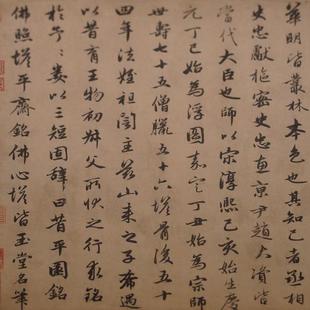 華明皆叢林本色也其知己者丞相
史忠獻樞密史忠京尹趙大資皆
當代大臣也師以宗淳熙己亥始生慶
元丁巳始為浮圖嘉定丁丑始為宗師
世壽七十五僧臘五十六塔骨後五十
四年法姪祖主茲山之子遇
以昔育王物初父所狀之行求銘
於予予婁以三短固辭曰昔平園銘
佛照塔平齋銘佛心塔皆玉堂名筆